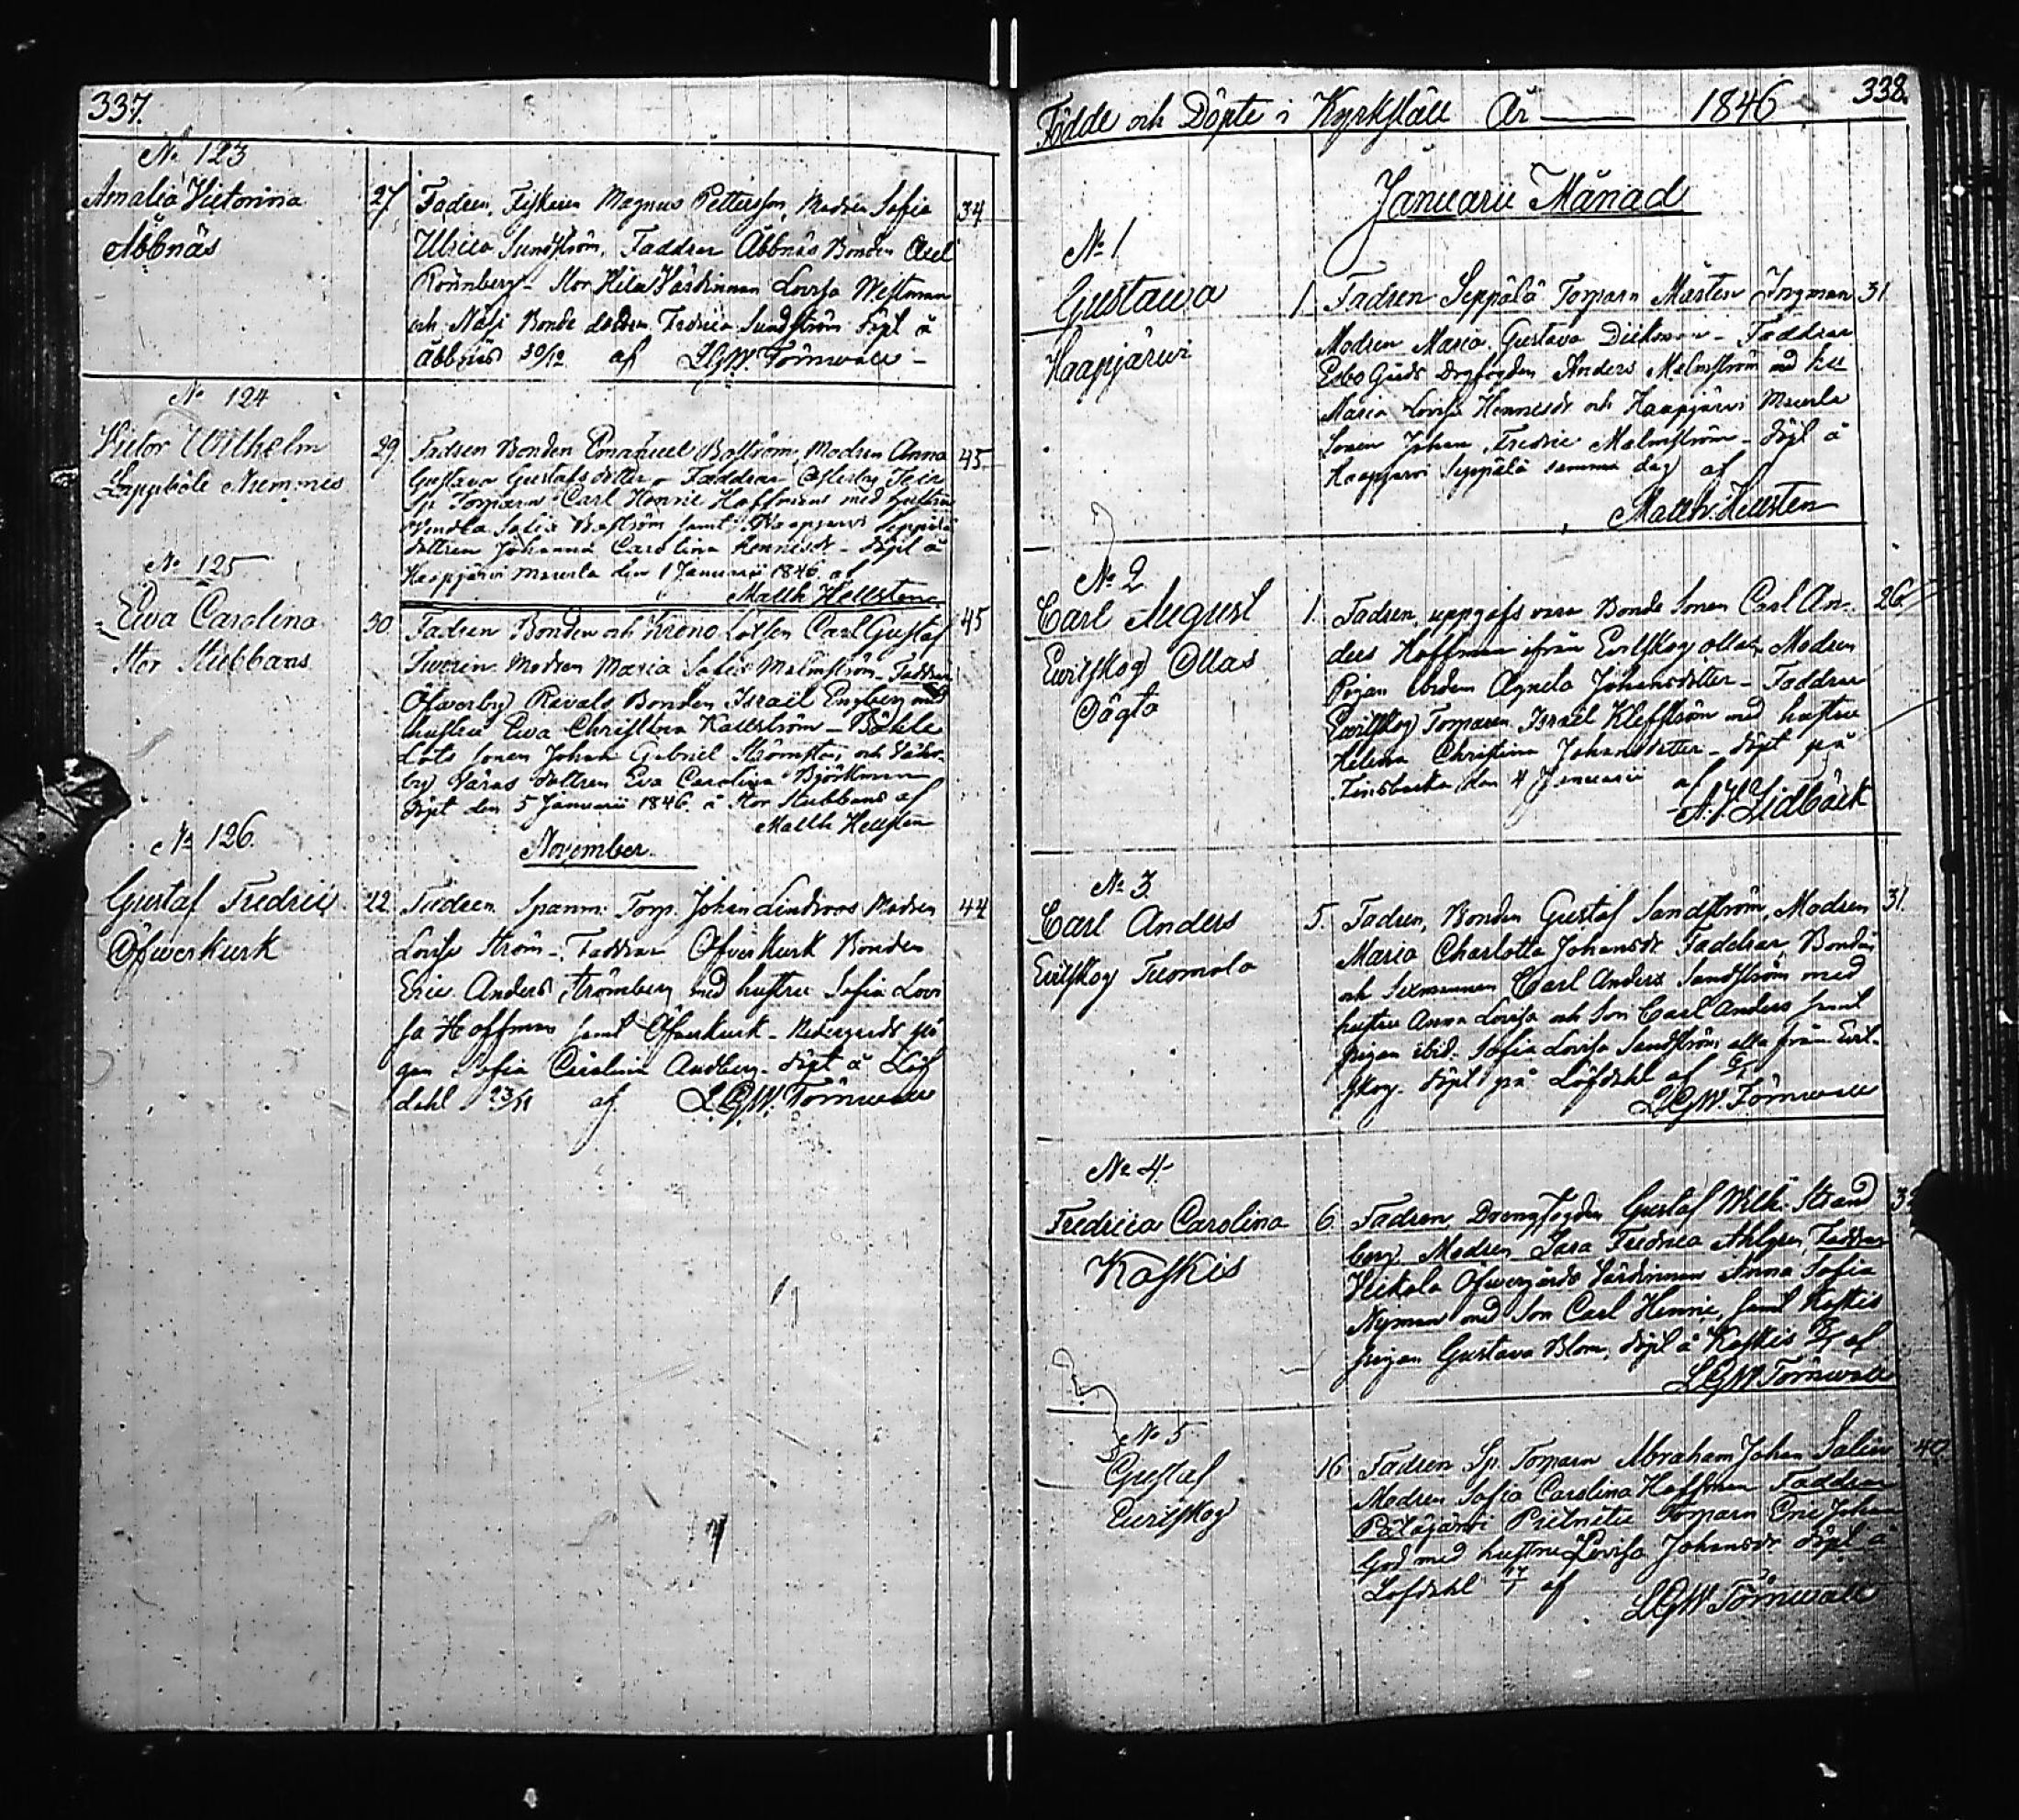 337.
No 123
Amalia Victorina
Åbbnäs
27. Fadren, Fiskaren Magnus Pettersson, Modren Sofia 34
Ulrica Sundström, Faddrar Åbbnäs Bonden Axel
Rönnberg - Stor Hila Värdinnan Lovisa Westman
och Näsi Bonde dottren Fredrica Sundström Döpt å
Åbbnäs 30/12 af LGW. Törnwall -
No 124
Victor Wilhelm
Lappböle Nummis
29. Fadren Bonden Emanuel Boström, Modren Anna 45
Gustava Gustafsdotter - Faddrar Österby
Sp. Torparn Carl Henric Hoffman med hustru
Vendla Sofia Boström samt Haapjarvi Seppälä
dottren Johanna Carolina Henricsdr - döpt å
Haapjärvi Maurla den 1 Januarii 1846 af
Matth Hellsten
No 125
Ewa Carolina
Stor Stubbans
30 Fadren Bonden och Krono Lotsen Carl Gustaf 45
Iwerin Modren Maria Sofia Malmström - Faddrar
Öfwerby Ravals Bonden Israël Engberg med
hustru Ewa Christina Kallström - Båtvik
Lots sonen Johan Gabriel Strömsten och
by Varas dottren Eva Carolina Björkman
döpt den 5 Januarii 1846 å Stor Stubbans af
Matth Hellsten
November
No 126.
Gustaf Fredric
Öfwerkurk
22 Fadren Spanm: Torp. Johan Lindroos Modren 44
Lovisa Ström - Faddrar Öfverkurk Bonden
Eric Anders Strömberg med hustru Sofia Lovi
sa Hoffman samt Öfverkurk - Nedergårds pi
gan Sofia Carolina Andberg - döpt å Löf
dahl 23/11 af LGW. Törnwall
338.
Födde och Döpte i Kyrkslätt År 1846
Januarii Månad
No 1
Gustawa
Haapjärwi
1. Fadren Seppälä Torparn Mårten Ingman 31
Modren Maria Gustava Dickman - Faddrar
Esbo Gårds Drgfogden Anders Malmström med hu
Maria Lovisa Henricsdr och Haapjärvi Maurla
Sonen Johan Fredric Malmström - döpt å
Haapjärvi Seppälä samma dag af
Matth. Hellsten
No 2
Carl August
Evitskog Ollas
Oägta
1. Fadren, uppgifs vara Bonde Sonen Carl An- 26
ders Hoffman ifrån Evitskog Ollas, Modren
Pigan ibidem Agneta Johansdotter - Faddrar
Evitskog Torparen Israël Kleffström med hustru
Helena Christina Johansdotter - döpt på
Finsbacka den 4 Januarii af
A.V. Lidbäck
No 3.
Carl Anders
Evitskog Tuomola
5. Fadren, Bonden Gustaf Sandström, Modren 31.
Maria Charlotta Johansdr Faddrar, Bonden
och Sexmannen Carl Anders Sandström med
hustru Anna Lovisa och Son Carl Anders samt
pigan ibid. Sofia Lovisa Sandström alla från Evit-
skog. döpt på Löfdahl af 6/1
LGW. Törnwall
No 4.
Fredrica Carolina
Kaskis
6 Fadren, Drengfogden Gustaf Wilh. Strand
berg, Modren Sara Fredrica Ahlgren, Faddrar
Heikola Öfwergårds Värdinnan Anna Sofia
Nyman med Son Carl Henric, samt Kaskis
pigan Gustava Blom, döpt å Kaskis af
LGW Törnwall
No 5
Gustaf
Evitskog
16 Fadren Sp. Torparn Abraham Johan Salin 40
Modren Sofia Carolina Hoffman Faddrar
Torparn Eric Johan
God med hustru Lovisa Johansdr döpt å
Löfdahl 17/1 af LGW Törnwall